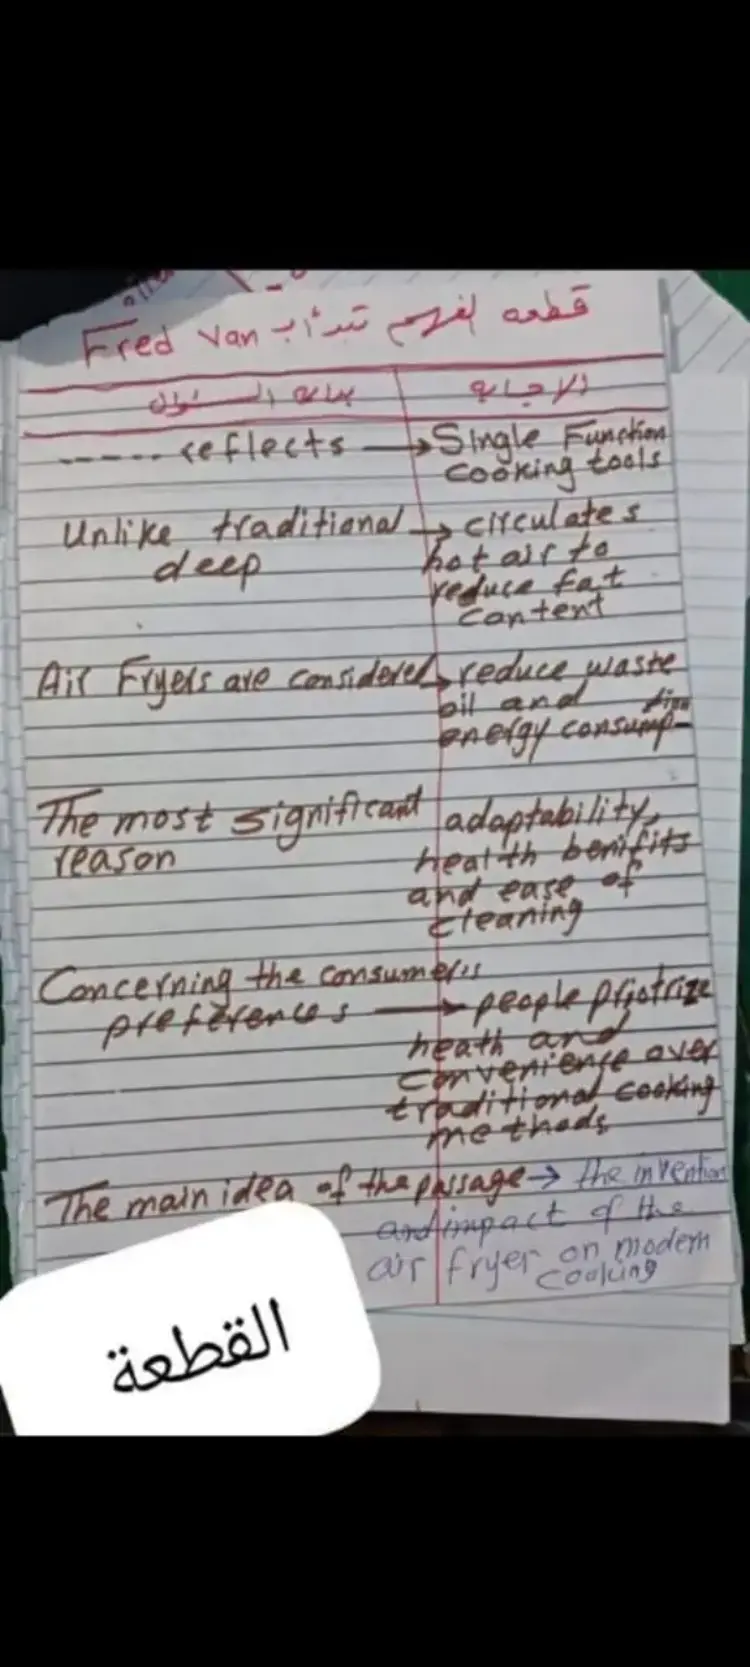 قطعه الفهم تبدأ بـ Fred Van
بداية السؤال
الاجابه
------ reflects → Single Function
cooking tools
Unlike traditional → circulates
deep
hot air to
reduce fat
content
Air Fryers are considered → reduce waste
oil and
energy consump-
tion
The most significant
reason
adaptability,
health benifits
and ease of
cleaning
Concerning the consumer's
preferences → people priotrize
heath and
convenience over
traditional cooking
methods
The main idea of the passage → the invention
and impact of the
air fryer on modern
cooking
القطعة